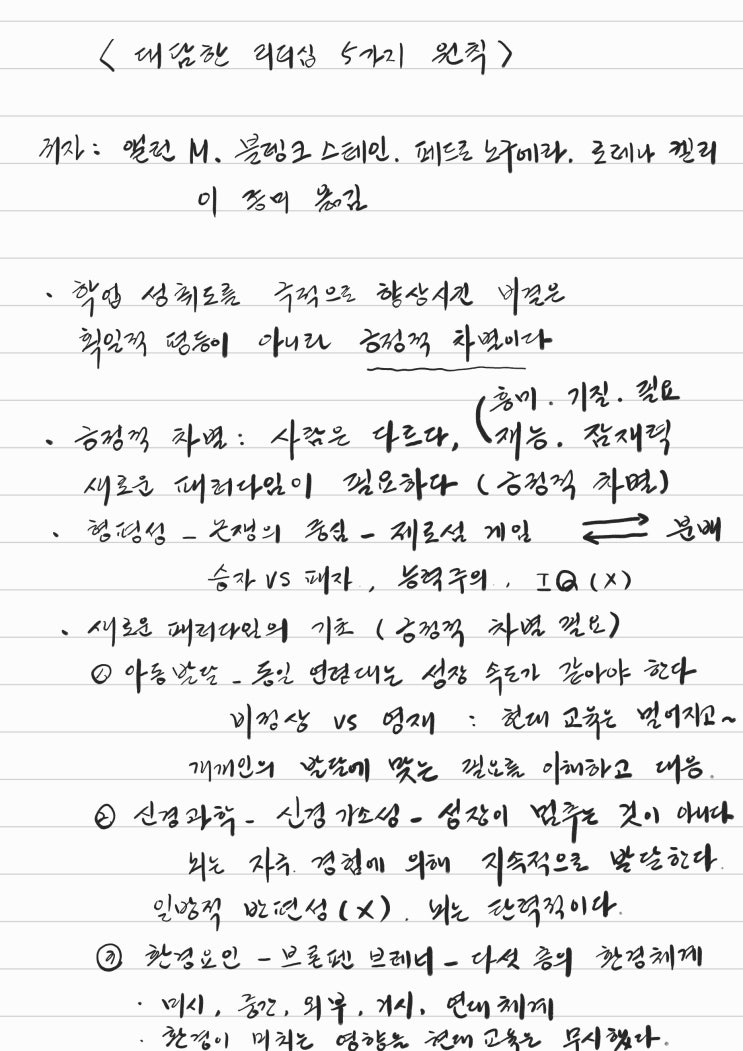 < 대담한 리더십 5가지 원칙 >
저자: 앨런 M. 블랭크스테인. 페드로 노구에라. 로레나 켈리
이 종미 옮김
· 학업 성취도를 극적으로 향상시킨 비결은
획일적 평등이 아니라 긍정적 차별이다
(흥미. 기질. 필요
· 긍정적 차별: 사람은 다르다, 재능. 잠재력
새로운 패러다임이 필요하다 (긍정적 차별)
· 형평성 - 논쟁의 중심 - 제로섬 게임 ⇄ 분배
승자 VS 패자, 능력주의, IQ (X)
· 새로운 패러다임의 기초 (긍정적 차별 필요)
① 아동발달 - 동일 연령대는 성장 속도가 같아야 한다
비정상 VS 영재 : 현대 교육은 멀어지고~
개개인의 발달에 맞는 필요를 이해하고 대응.
② 신경과학 - 신경 가소성 - 성장이 멈추는 것이 아니다
뇌는 자주 경험에 의해 지속적으로 발달한다.
일방적 반편성 (X). 뇌는 탄력적이다.
③ 환경요인 - 브론펜 브레너 - 다섯 층의 환경체계
· 미시, 중간, 외부, 거시, 연대 체계
· 환경이 미치는 영향을 현대 교육은 무시했다.